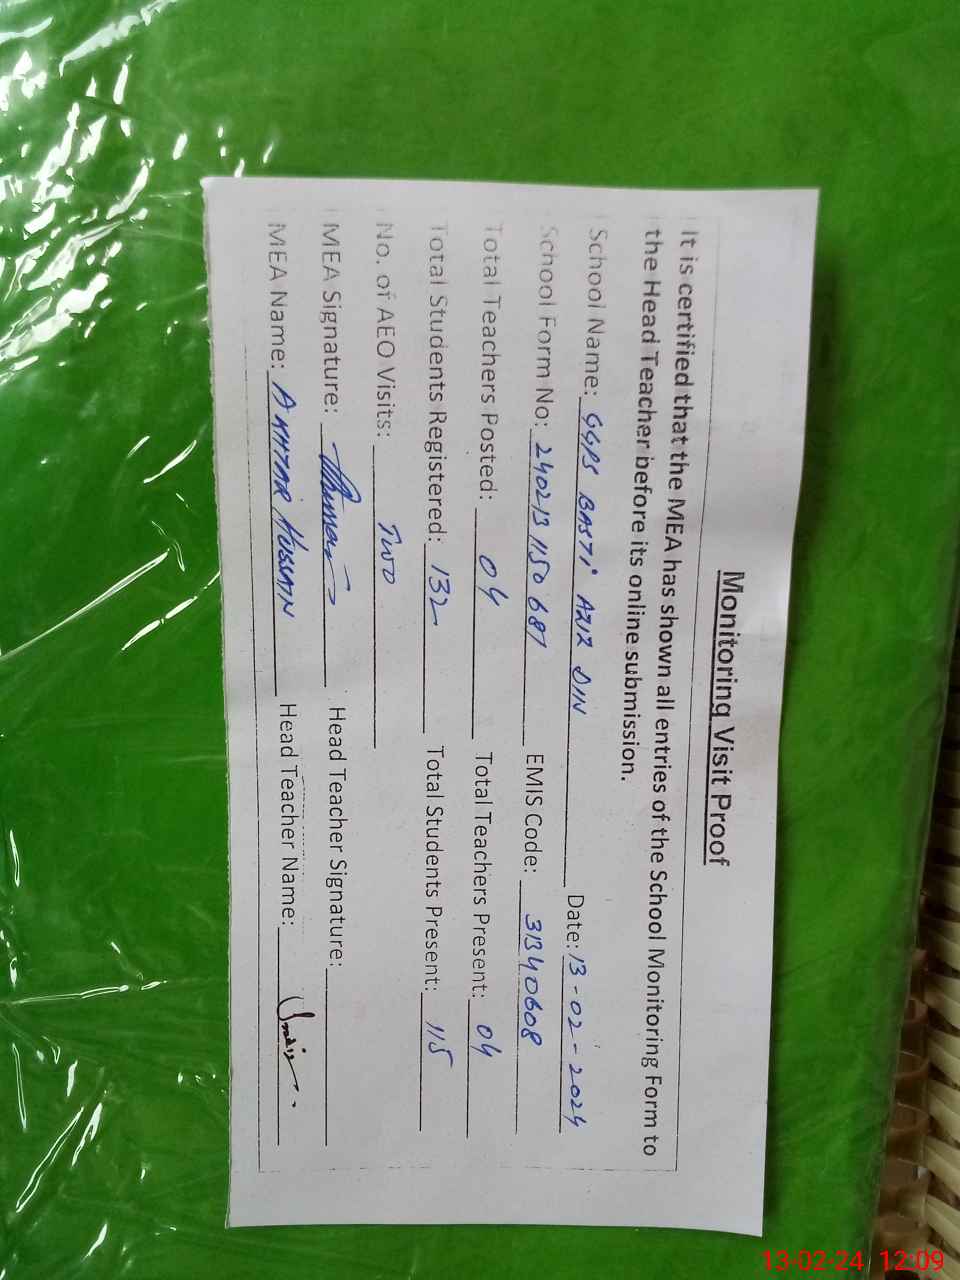 Monitoring Visit Proof
It is certified that the MEA has shown all entries of the School Monitoring Form to
the Head Teacher before its online submission.
School Name: GGPS BASTI AZIZ DIN Date: 13-02-2024
School Form No: 240213 1150 687 EMIS Code: 31340608
Total Teachers Posted: 04 Total Teachers Present: 04
Total Students Registered: 132 Total Students Present: 115
No. of AEO Visits: TWO
MEA Signature: Head Teacher Signature:
MEA Name: AKHTAR HUSSAIN Head Teacher Name:
13-02-24 12:09